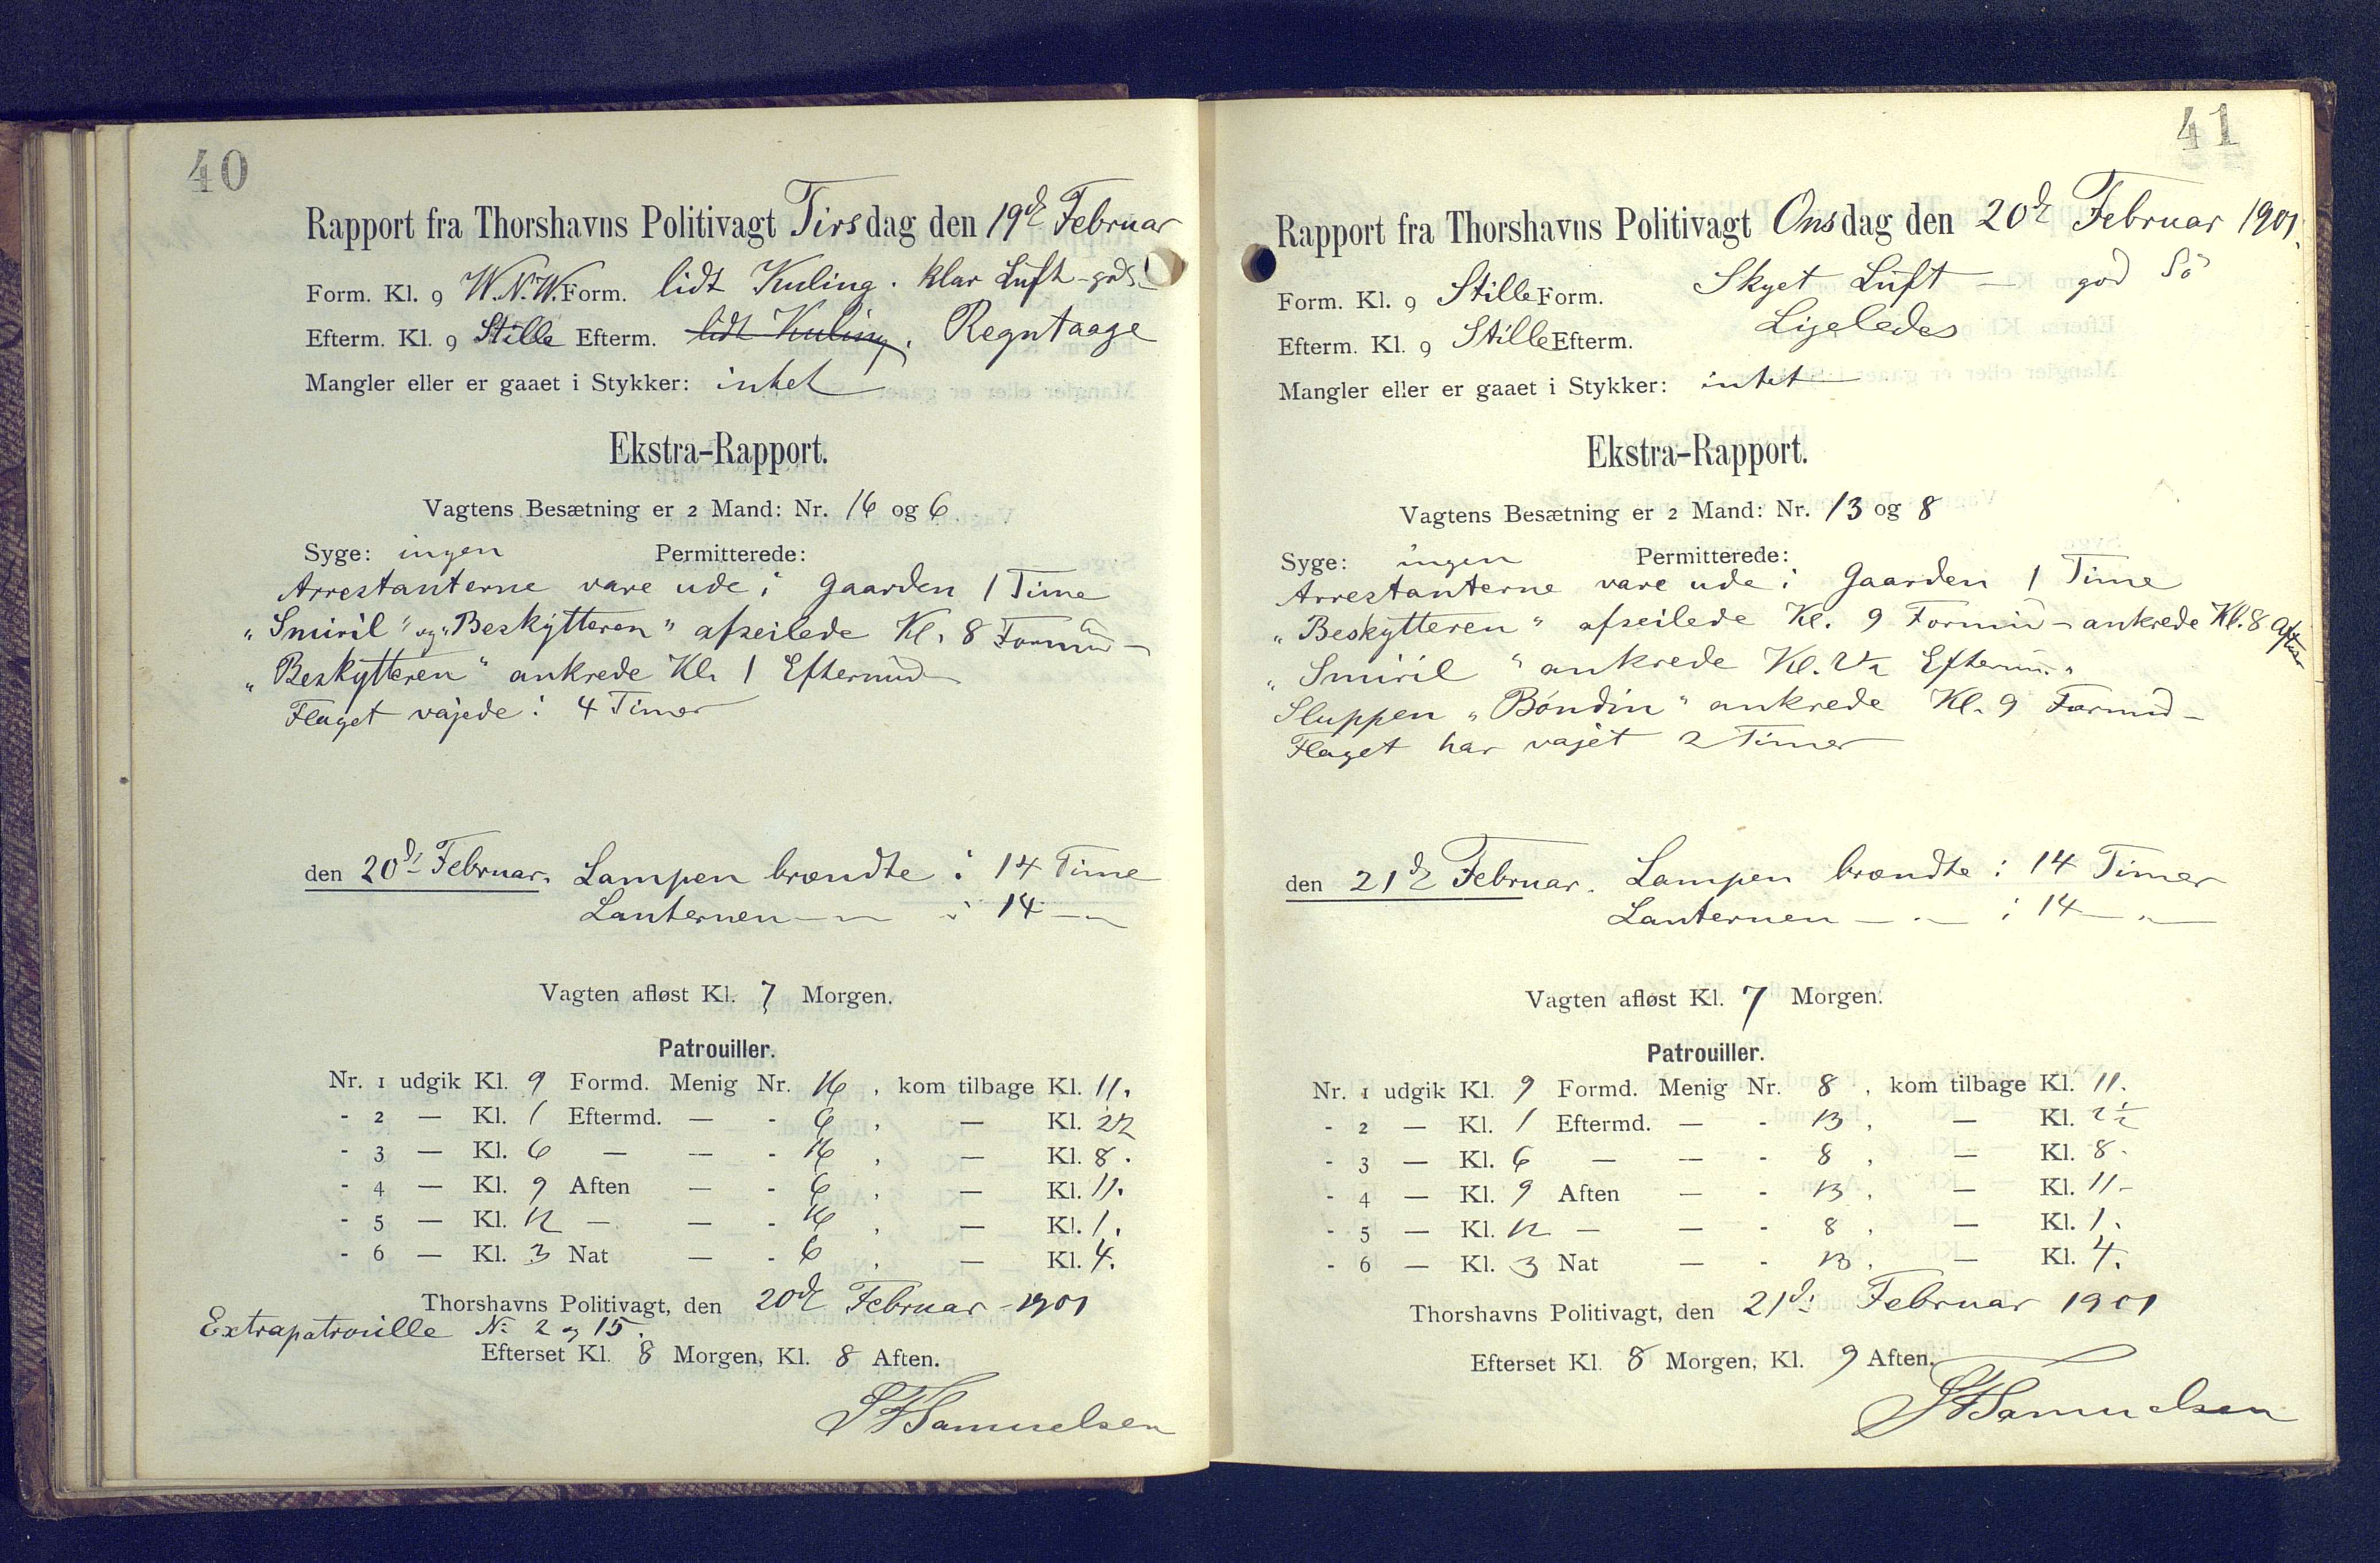 40
Rapport fra Thorshavns Politivagt Tirsdag den 19de Februar
Form. Kl. 9 W.N.W. Form. lidt Kuling. klar Luft - god
Efterm. Kl. 9 Stille Efterm. lidt Kuling. Regntaage
Mangler eller er gaaet i Stykker: intet
Ekstra-Rapport.
Vagtens Besætning er 2 Mand: Nr. 16 og 6
Syge: ingen Permitterede:
Arrestanterne vare ude i Gaarden 1 Time
"Smiril" og "Beskytteren" afseilede Kl. 8 Formid
"Beskytteren" ankrede Kl. 1 Eftermid
Flaget vajede i 4 Timer
den 20de Februar. Lampen brændte i 14 Time
Lanternen — " — i 14 — "
Vagten afløst Kl. 7 Morgen.
Patrouiller.
Nr. 1 udgik Kl. 9 Formd. Menig Nr. 16, kom tilbage Kl. 11.
- 2 — Kl. 1 Eftermd. — - 6, — Kl. 2½
- 3 — Kl. 6 — — - 16, — Kl. 8.
- 4 — Kl. 9 Aften — - 6, — Kl. 11.
- 5 — Kl. 12 — — - 16, — Kl. 1.
- 6 — Kl. 3 Nat — - 6, — Kl. 4.
Thorshavns Politivagt, den 20de Februar - 1901
Extrapatrouille No 2 og 15.
Efterset Kl. 8 Morgen, Kl. 8 Aften.
Samuelsen
41
Rapport fra Thorshavns Politivagt Onsdag den 20de Februar 1901.
Form. Kl. 9 Stille Form. Skyet Luft — god Sö
Efterm. Kl. 9 Stille Efterm. Ligeledes
Mangler eller er gaaet i Stykker: intet
Ekstra-Rapport.
Vagtens Besætning er 2 Mand: Nr. 13 og 8
Syge: ingen Permitterede:
Arrestanterne vare ude i Gaarden 1 Time
"Beskytteren" afseilede Kl. 9 Formid - ankrede Kl. 8 Aften
"Smiril" ankrede Kl. 2½ Eftermi.
Sluppen "Bóndin" ankrede Kl. 9 Formid -
Flaget har vajet 2 Timer
den 21de Februar. Lampen brændte i 14 Timer
Lanternen — " — i 14 — " —
Vagten afløst Kl. 7 Morgen.
Patrouiller.
Nr. 1 udgik Kl. 9 Formd. Menig Nr. 8, kom tilbage Kl. 11.
- 2 — Kl. 1 Eftermd. — - 13, — Kl. 2½
- 3 — Kl. 6 — — - 8, — Kl. 8.
- 4 — Kl. 9 Aften — - 13, — Kl. 11-
- 5 — Kl. 12 — — - 8, — Kl. 1.
- 6 — Kl. 3 Nat — - 13, — Kl. 4.
Thorshavns Politivagt, den 21de Februar 1901
Efterset Kl. 8 Morgen, Kl. 9 Aften.
Samuelsen